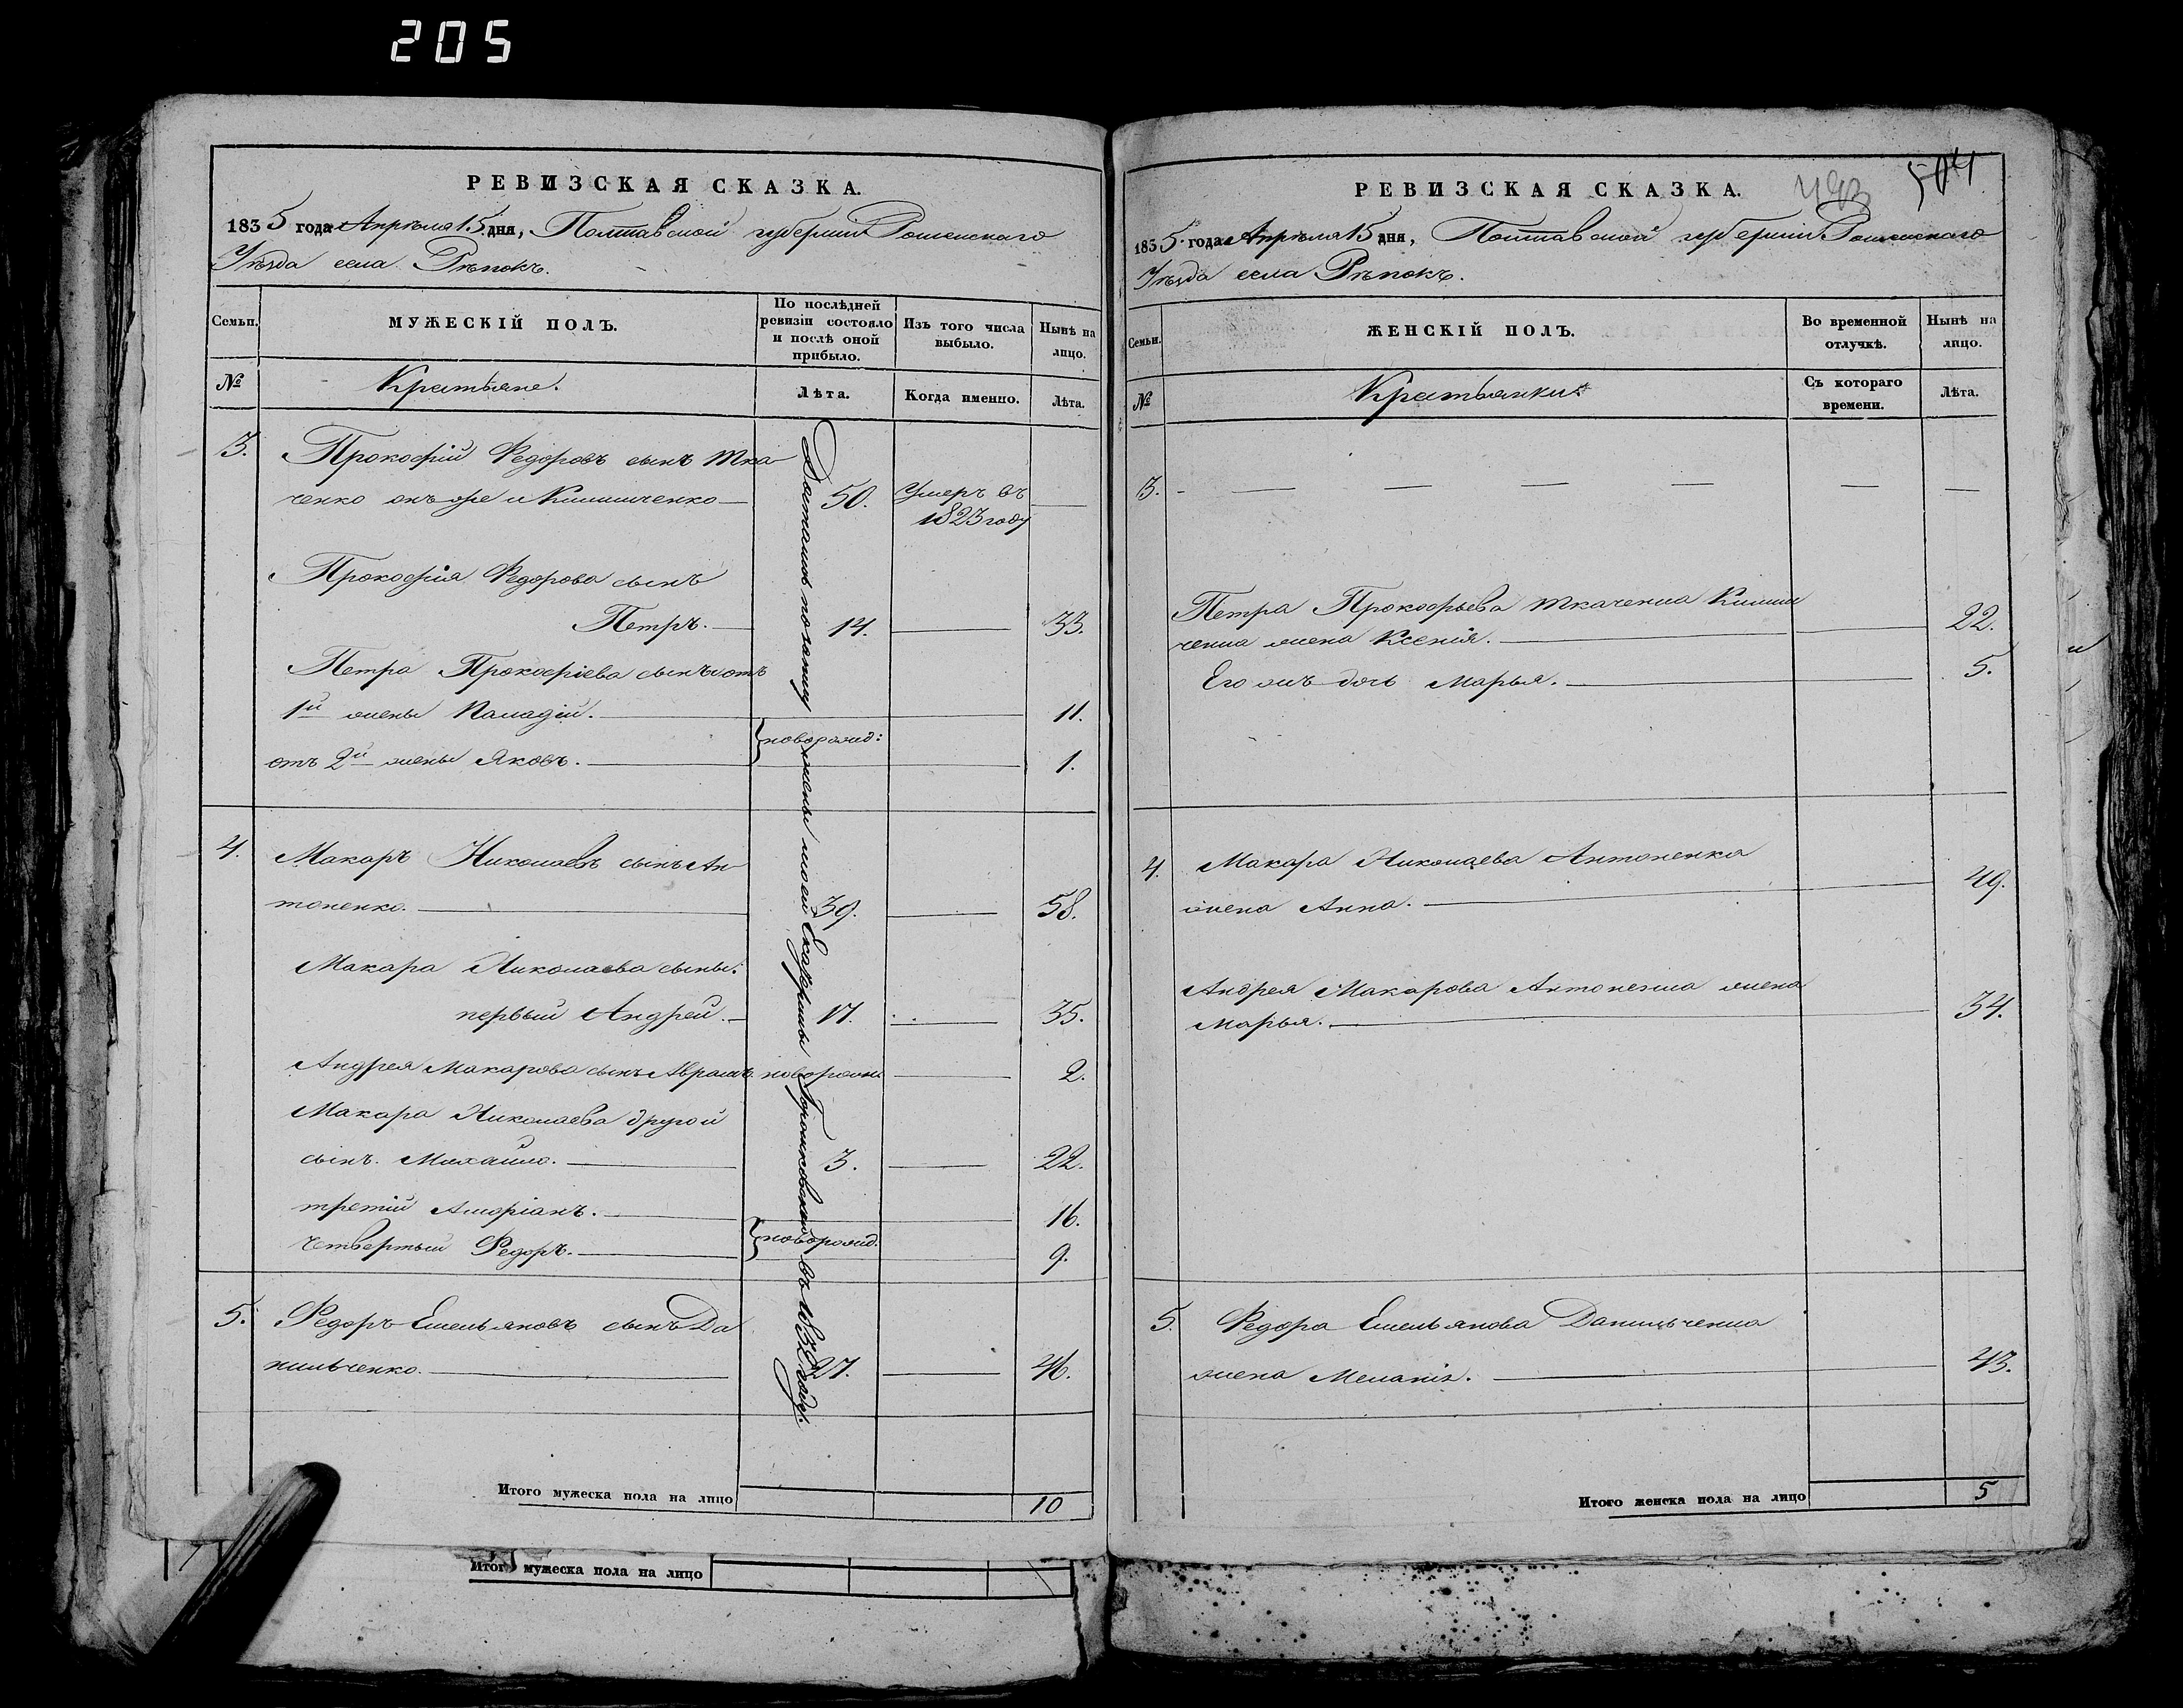 205
РЕВИЗСКАЯ СКАЗКА.
1835 года Апрѣля 15 дня, Полтавской губерніи Роменскаго
Уѣзда села Рѣпокъ.
Семьи.
МУЖЕСКІЙ ПОЛЪ.
По послѣдней ревизіи состояло и послѣ оной прибыло.
Изъ того числа выбыло.
Нынѣ на лицо.
№
Крестьяне.
Лѣта.
Когда именно.
Лѣта.
3. Прокофій Федоровъ сынъ Тка
ченко онъ же и Климченко — 50. Умеръ въ 1823 году —
Прокофія Федорова сынъ
Петръ. — 14. — 33.
Петра Прокофіева сынъ отъ
1й жены Паладій. — 11.
новорожд:
отъ 2й жены Яковъ. — 1.
4. Макаръ Николаевъ сынъ Ан
тоненко. — 39. — 58.
Макара Николаева сыны:
первый Андрей. — 17. — 35.
Андрея Макарова сынъ Аврамъ новорожд — 2.
Макара Николаева другой
сынъ Михайло. — 3. — 22.
третій Андріанъ. — 16.
новорожд.
четвертый Федоръ. — 9.
5. Федоръ Емельяновъ сынъ Да
нильченко. — 27. — 46.
Достались по
жены моей Екатерины
въ 1832 году.
Итого мужеска пола на лицо 10
Итого мужеска пола на лицо
РЕВИЗСКАЯ СКАЗКА.
493 504
1835 года Апрѣля 15 дня, Полтавской губерніи Роменскаго
Уѣзда села Рѣпокъ.
Семьи.
ЖЕНСКІЙ ПОЛЪ.
Во временной отлучкѣ.
Нынѣ на лицо.
№
Крестьянки.
Съ котораго времени.
Лѣта.
3. — — — — — —
Петра Прокофьева Ткаченка Клим
ченка жена Ксенія. — 22.
Его жъ дочь Марья. — 5.
4. Макара Николаева Антоненка
жена Анна. — 49.
Андрея Макарова Антоненка жена
Марья. — 34.
5. Федора Емельянова Данильченка
жена Меланія. — 43.
Итого женска пола на лицо 5